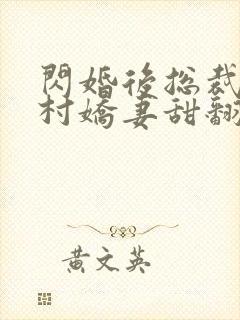 閃婚後總裁
村嬌妻甜翻
黃文英